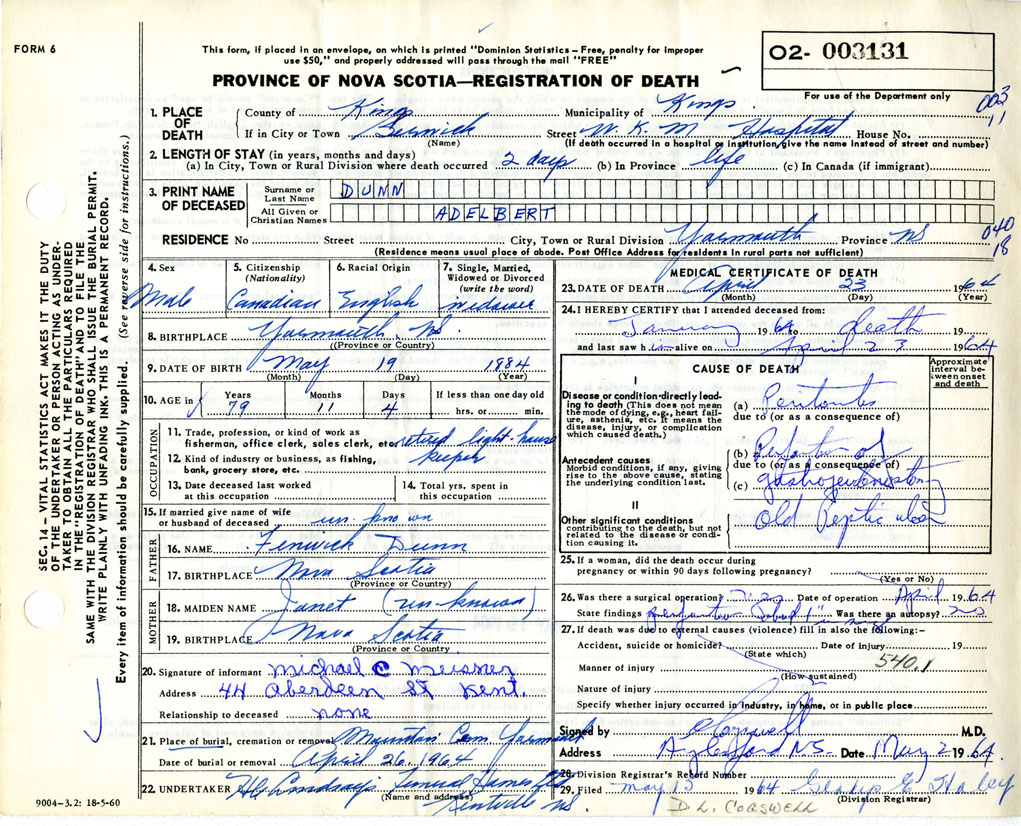 FORM 6
This form, if placed in an envelope, on which is printed "Dominion Statistics – Free, penalty for improper
use $50," and properly addressed will pass through the mail "FREE"
PROVINCE OF NOVA SCOTIA—REGISTRATION OF DEATH
02- 003131
For use of the Department only
003
11
1. PLACE OF DEATH
County of Kings Municipality of Kings
If in City or Town Berwick Street W. K. M Hospital House No.
(Name) (If death occurred in a hospital or institution, give the name instead of street and number)
2. LENGTH OF STAY (in years, months and days)
(a) In City, Town or Rural Division where death occurred 2 days (b) In Province life (c) In Canada (if immigrant)
3. PRINT NAME OF DECEASED
Surname or Last Name DUNN
All Given or Christian Names ADELBERT
RESIDENCE No Street City, Town or Rural Division Yarmouth Province NS
040
18
(Residence means usual place of abode. Post Office Address for residents in rural parts not sufficient)
4. Sex Male
5. Citizenship (Nationality) Canadian
6. Racial Origin English
7. Single, Married, Widowed or Divorced (write the word) widower
8. BIRTHPLACE Yarmouth, NS.
(Province or Country)
9. DATE OF BIRTH May 19 1884
(Month) (Day) (Year)
10. AGE in Years 79 Months 11 Days 4 If less than one day old hrs. or min.
OCCUPATION
11. Trade, profession, or kind of work as fisherman, office clerk, sales clerk, etc. retired light-house
12. Kind of industry or business, as fishing, bank, grocery store, etc. keeper
13. Date deceased last worked at this occupation
14. Total yrs. spent in this occupation
15. If married give name of wife or husband of deceased un-known
FATHER
16. NAME Fenwick Dunn
17. BIRTHPLACE Nova Scotia
(Province or Country)
MOTHER
18. MAIDEN NAME Janet (un-known)
19. BIRTHPLACE Nova Scotia
(Province or Country)
20. Signature of informant Michael C Meisner
Address 44 Aberdeen St Kent.
Relationship to deceased none
21. Place of burial, cremation or removal Mountain Cem Yarmouth
Date of burial or removal April 26, 1964
22. UNDERTAKER Lindsay's Funeral Home
(Name and address) Kentville NS.
9004-3.2: 18-5-60
MEDICAL CERTIFICATE OF DEATH
23. DATE OF DEATH April 23 1964
(Month) (Day) (Year)
24. I HEREBY CERTIFY that I attended deceased from:
January 1964 to death 19
and last saw him alive on April 23 1964
CAUSE OF DEATH
Approximate interval between onset and death
I
Disease or condition directly leading to death (This does not mean the mode of dying, e.g., heart failure, asthenia, etc. It means the disease, injury, or complication which caused death.)
(a) Peritonitis
due to (or as a consequence of)
Antecedent causes
Morbid conditions, if any, giving rise to the above cause, stating the underlying condition last.
(b) Perforation of
due to (or as a consequence of)
(c) gastrojejunostomy
II
Other significant conditions contributing to the death, but not related to the disease or condition causing it.
Old Peptic ulcer
25. If a woman, did the death occur during pregnancy or within 90 days following pregnancy?
(Yes or No)
26. Was there a surgical operation? Date of operation April 1964
State findings perforation Was there an autopsy? no
27. If death was due to external causes (violence) fill in also the following:–
Accident, suicide or homicide? Date of injury 19
(State which)
540.1
Manner of injury
(How sustained)
Nature of injury
Specify whether injury occurred in industry, in home, or in public place
Signed by M.D.
Address Aylesford NS. Date May 2 1964
28. Division Registrar's Record Number
29. Filed May 13 1964 Gladys E Haley
(Division Registrar)
D. L. CORSWELL
SEC. 14 – VITAL STATISTICS ACT MAKES IT THE DUTY
OF THE UNDERTAKER OR PERSON ACTING AS UNDER-
TAKER TO OBTAIN ALL THE PARTICULARS REQUIRED
IN THE "REGISTRATION OF DEATH" AND TO FILE THE
SAME WITH THE DIVISION REGISTRAR WHO SHALL ISSUE THE BURIAL PERMIT.
WRITE PLAINLY WITH UNFADING INK. THIS IS A PERMANENT RECORD.
Every item of information should be carefully supplied. (See reverse side for instructions.)